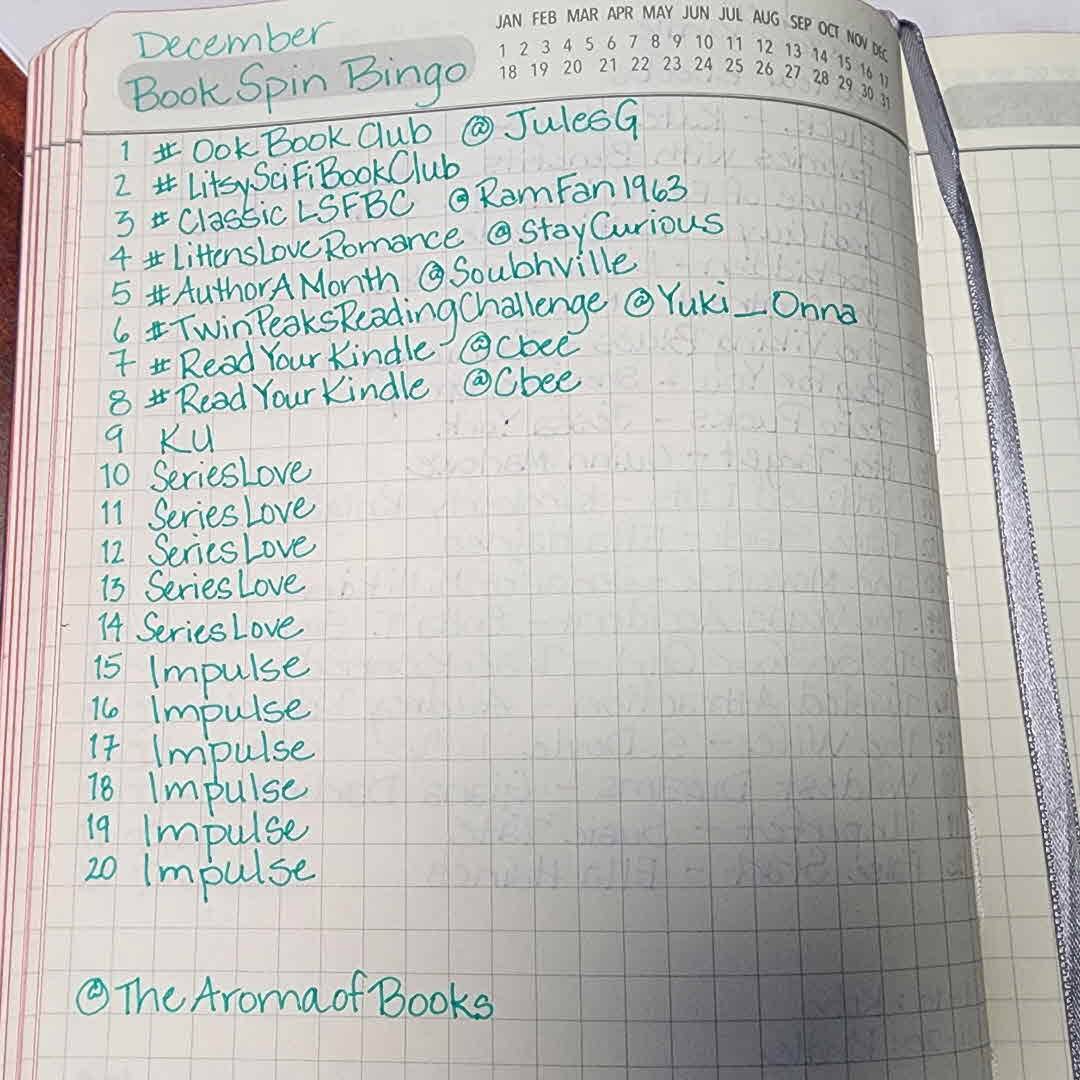 JAN FEB MAR APR MAY JUN JUL AUG SEP OCT NOV DEC
1 2 3 4 5 6 7 8 9 10 11 12 13 14 15 16 17
18 19 20 21 22 23 24 25 26 27 28 29 30 31
December
Book Spin Bingo
1 # Ook Book Club @ JulesG
2 # LitsySciFiBookClub
3 # Classic LSFBC @RamFan1963
4 # LittensLoveRomance @StayCurious
5 # AuthorAMonth @Soubhville
6 # TwinPeaksReadingChallenge @Yuki_Onna
7 # Read Your Kindle @Cbee
8 # Read Your Kindle @Cbee
9 KU
10 SeriesLove
11 Series Love
12 Series Love
13 Series Love
14 Series Love
15 Impulse
16 Impulse
17 Impulse
18 Impulse
19 Impulse
20 Impulse
@TheAromaofBooks